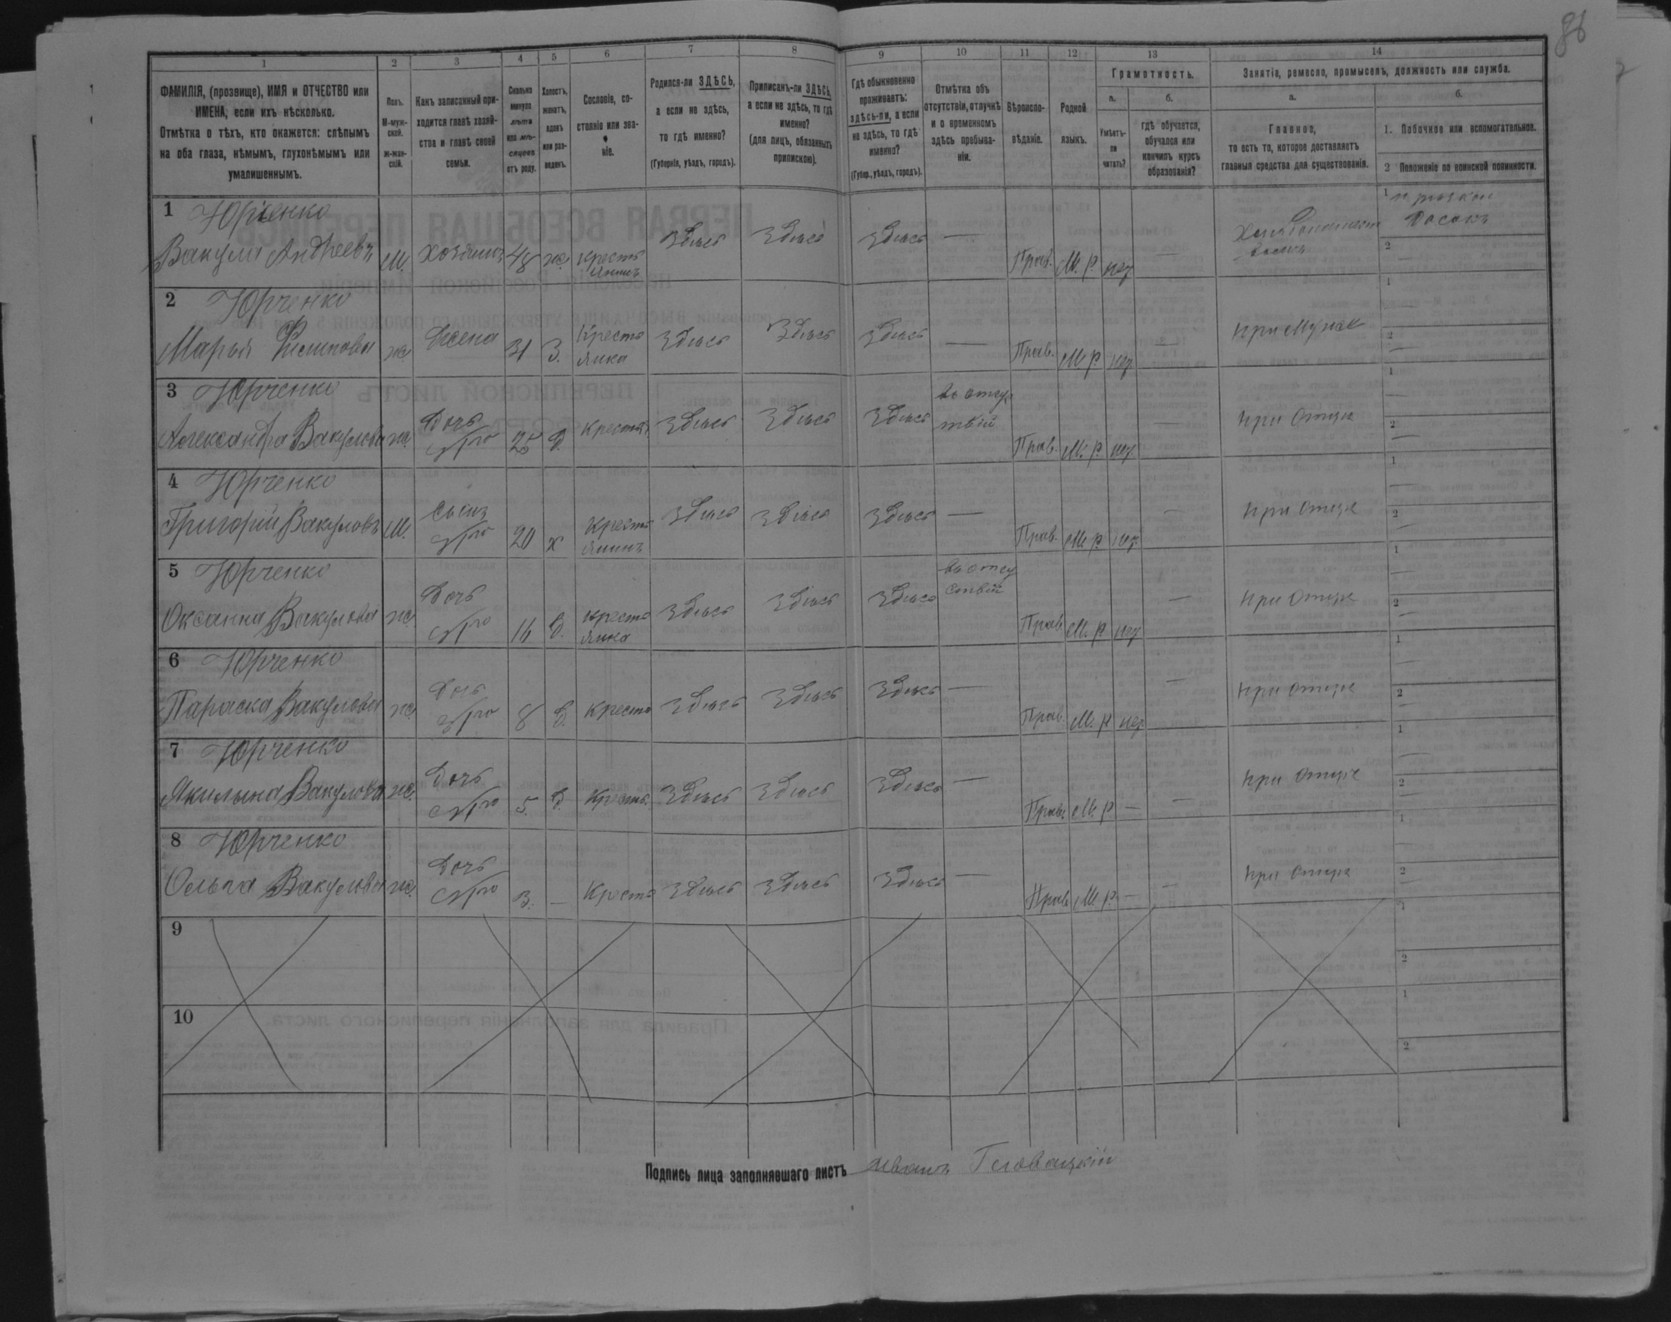 86
1 2 3 4 5 6 7 8 9 10 11 12 13 14
ФАМИЛІЯ, (прозвище), ИМЯ и ОТЧЕСТВО или ИМЕНА, если ихъ нѣсколько.
Отмѣтка о тѣхъ, кто окажется: слѣпымъ на оба глаза, нѣмымъ, глухонѣмымъ или умалишеннымъ.
Полъ.
М-муж-
ской.
Ж-жен-
скій.
Какъ записанный при-
ходится главѣ хозяй-
ства и главѣ своей
семьи.
Сколько
минуло
лѣтъ
или мѣ-
сяцевъ
отъ роду.
Холостъ,
женатъ,
вдовъ
или раз-
веденъ.
Сословіе, со-
стояніе или зва-
ніе.
Родился-ли ЗДѢСЬ,
а если не здѣсь,
то гдѣ именно?
(Губернія, уѣздъ, городъ).
Приписанъ-ли ЗДѢСЬ,
а если не здѣсь, то гдѣ
именно?
(для лицъ, обязанныхъ
припискою).
Гдѣ обыкновенно
проживаетъ:
здѣсь-ли, а если
не здѣсь, то гдѣ
именно?
(Губер., уѣздъ, городъ).
Отмѣтка объ
отсутствіи, отлучкѣ
и о временномъ
здѣсь пребыва-
ніи.
Вѣроиспо-
вѣданіе.
Родной
языкъ.
Грамотность.
а.
Умѣетъ-
ли
читать?
б.
гдѣ обучается,
обучался или
кончилъ курсъ
образованія?
Занятіе, ремесло, промыселъ, должность или служба.
а.
Главное,
то есть то, которое доставляетъ
главныя средства для существованія.
б.
1. Побочное или вспомогательное.
2 Положеніе по воинской повинности.
1 Юрченко
Вакула Андреевъ М. Хозяинъ 48 ж. Кресть янинъ Здѣсь Здѣсь Здѣсь — Прав. М. р нег —
2 Юрченко
Марья Филипова ж Жена 31 З. Кресть янка Здѣсь Здѣсь Здѣсь — Прав. М р нег — при Мужѣ
3 Юрченко
Александра Вакулова ж Дочь его 25 д. Кресть Здѣсь Здѣсь Здѣсь въ отсу ствіи Прав. М. р нег — при Отцѣ
4 Юрченко
Григорій Вакуловъ М. Сынъ его 20 х Кресть янинъ Здѣсь Здѣсь Здѣсь — Прав. М р нег — при Отцѣ
5 Юрченко
Оксанна Вакулова ж Дочь его 16 д. Кресть янка Здѣсь Здѣсь Здѣсь въ отсу ствіи Прав М. р нег — при Отцѣ
6 Юрченко
Параска Вакулова ж Дочь его 8 д. Кресть Здѣсь Здѣсь Здѣсь — Прав. М. р нег — при отцѣ
7 Юрченко
Якилына Вакулова ж. Дочь его 5. д. Кресть Здѣсь Здѣсь Здѣсь — Прав. М. р — — при Отцѣ
8 Юрченко
Ольга Вакулова ж. Дочь его 3. — Кресть Здѣсь Здѣсь Здѣсь — Прав М. р — — при Отцѣ
9
10
Подпись лица заполнявшаго листъ Иванъ Головацкій